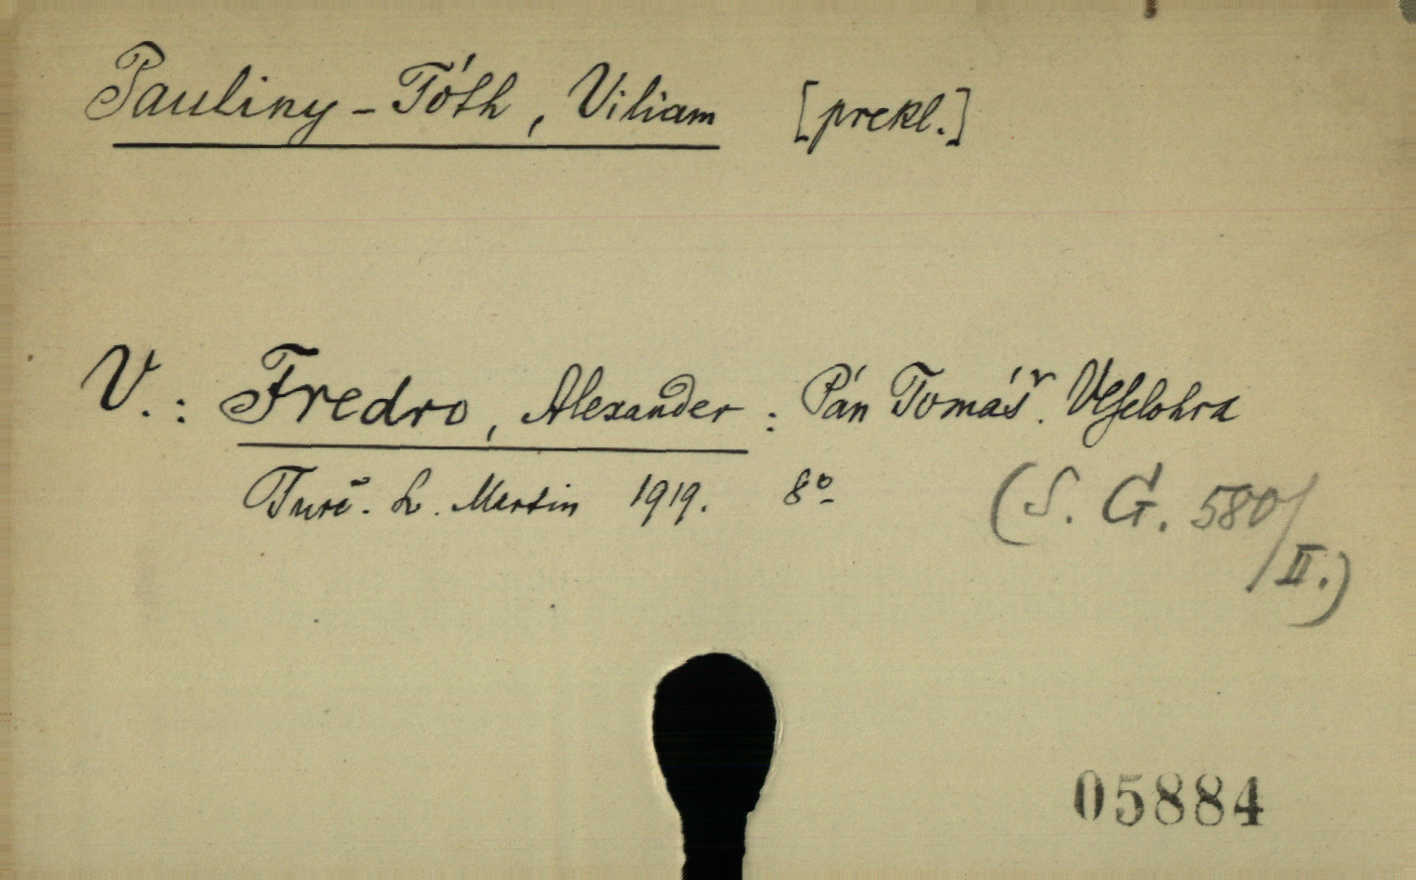 Pauliny-Tóth, Viliam [prekl.]
V.: Fredro, Alexander: Pán Tomáš. Veselohra
Turč. Sv. Martin 1919. 8º
(S. G. 580/II.)
05884